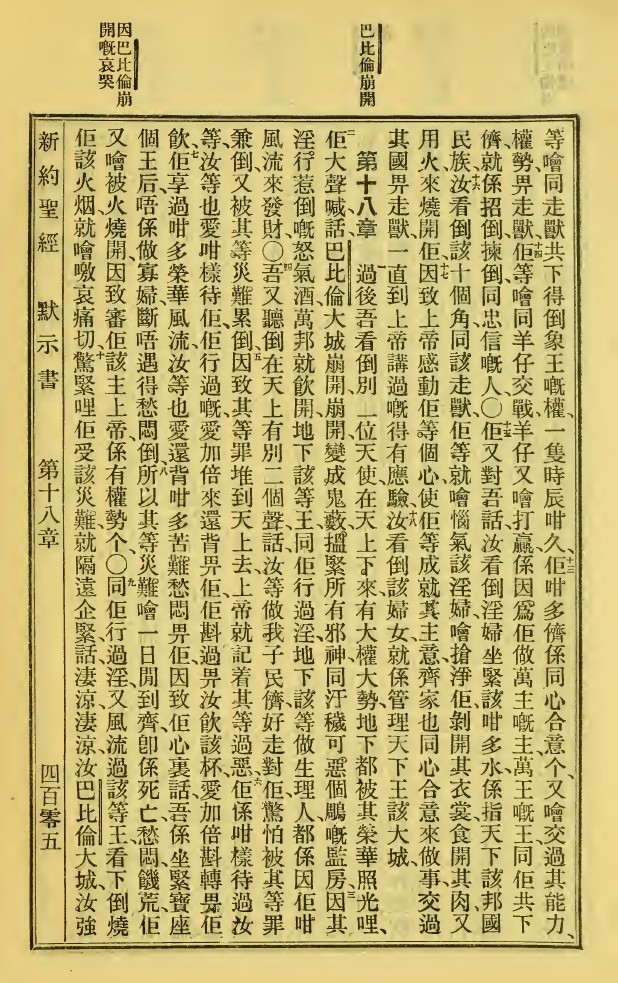 巴比倫崩開
因巴比倫崩
開嘅哀哭
等噲同走獸共下得倒象王嘅權、一隻時辰咁久、十三佢咁多儕係同心合意个、又噲交過其能力、
權勢畀走獸、十四佢等噲同羊仔交戰、羊仔又噲打贏、係因爲佢做萬主嘅主、萬王嘅王、同佢共下
儕就係招倒揀倒同忠信嘅人、〇十五佢又對吾話、汝看倒淫婦坐緊該咁多水、係指天下該邦國
民族、十六汝看倒該十個角、同該走獸、佢等就噲惱氣該淫婦、噲搶淨佢、剝開其衣裳、食開其肉、又
用火來燒開佢、十七因致上帝感動佢等個心、使佢等成就其主意、齊家也同心合意來做事、交過
其國畀走獸、一直到上帝講過嘅得有應驗、十八汝看倒該婦女、就係管理天下王該大城、
第十八章 一過後吾看倒別一位天使在天上下來、有大權大勢、地下都被其榮華照光哩、
二佢大聲喊話、巴比倫大城崩開崩開、變成鬼藪、搵緊所有邪神、同汙穢可惡個鵰嘅監房、三因其
淫行惹倒嘅怒氣酒、萬邦就飲開、地下該等王、同佢行過淫、地下該等做生理人、都係因佢咁
風流來發財、〇四吾又聽倒在天上有別二個聲話、汝等做我子民儕、好走對佢、驚怕被其等罪
兼倒、又被其等災難累倒、五因致其等罪堆到天上去、上帝就記着其等過惡、六佢係咁樣待過汝
等、汝等也愛咁樣待佢、佢行過嘅愛加倍來還背畀佢、佢斟過畀汝飲該杯、愛加倍斟轉畀佢
飲、七佢享過咁多榮華風流、汝等也愛還背咁多苦難愁悶畀佢、因致佢心裏話、吾係坐緊寶座
個王后、唔係做寡婦、斷唔遇得愁悶倒、八所以其等災難、噲一日閒到齊、卽係死亡、愁悶、饑荒、佢
又噲被火燒開、因致審佢該主上帝係有權勢个、〇九同佢行過淫、又風流過該等王、看下倒燒
佢該火烟、就噲噭哀痛切、十驚緊哩佢受該災難、就隔遠企緊話、淒涼淒涼、汝巴比倫大城、汝強
新約聖經 默示書 第十八章 四百零五